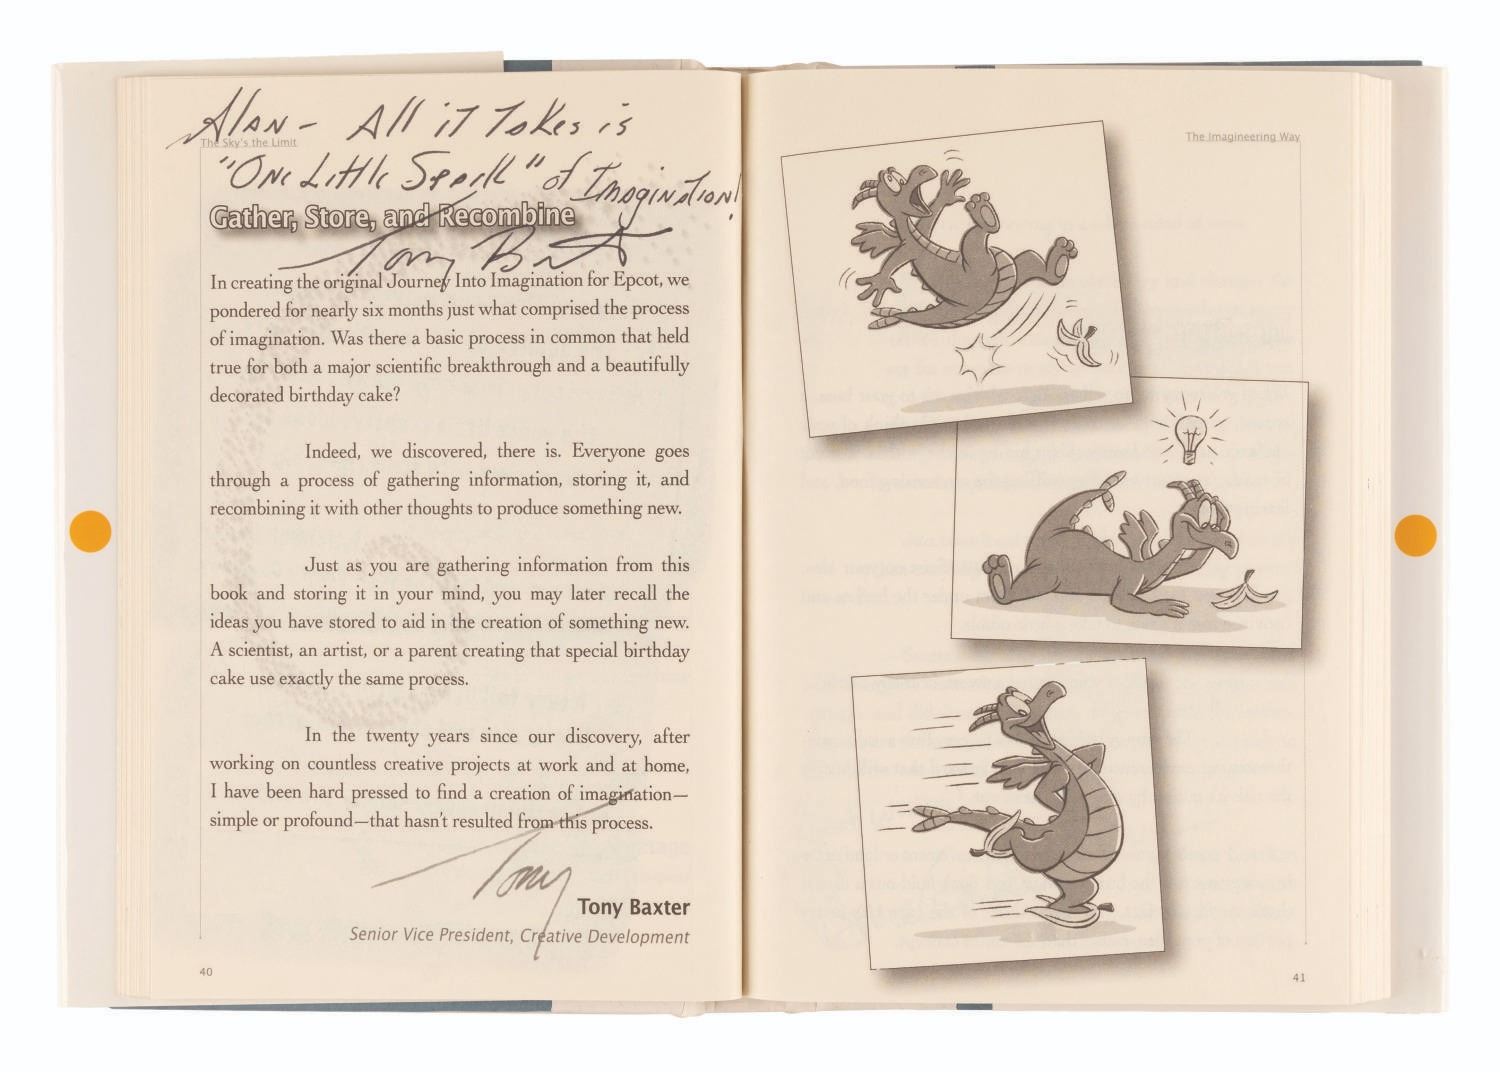 Alan - All it Takes is
The Sky's the Limit
"One Little Spark" of Imagination!
Gather, Store, and Recombine
Tony Baxter
In creating the original Journey Into Imagination for Epcot, we
pondered for nearly six months just what comprised the process
of imagination. Was there a basic process in common that held
true for both a major scientific breakthrough and a beautifully
decorated birthday cake?
Indeed, we discovered, there is. Everyone goes
through a process of gathering information, storing it, and
recombining it with other thoughts to produce something new.
Just as you are gathering information from this
book and storing it in your mind, you may later recall the
ideas you have stored to aid in the creation of something new.
A scientist, an artist, or a parent creating that special birthday
cake use exactly the same process.
In the twenty years since our discovery, after
working on countless creative projects at work and at home,
I have been hard pressed to find a creation of imagination—
simple or profound—that hasn't resulted from this process.
Tony
Tony Baxter
Senior Vice President, Creative Development
40
The Imagineering Way
41